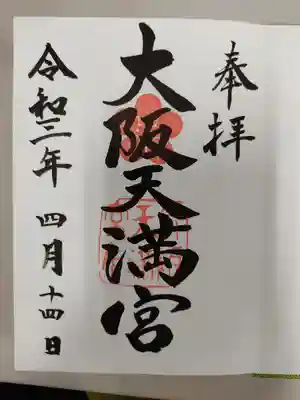 奉拝
大阪天満宮
令和三年 四月十四日